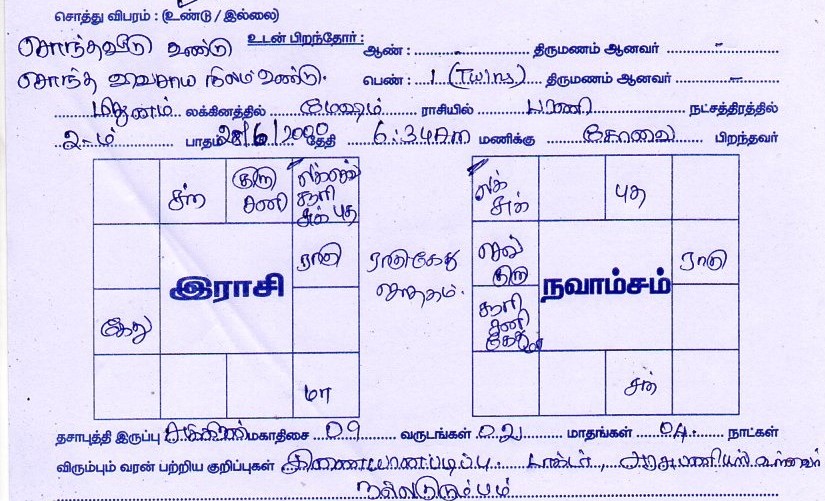 சொத்து விபரம் : (உண்டு / இல்லை)
சொந்த வீடு உண்டு உடன் பிறந்தோர் : ஆண் : - திருமணம் ஆனவர் -
சொந்த விவசாய நிலம் உண்டு. பெண் : 1 (Twins) திருமணம் ஆனவர் -
மிதுனம் லக்கினத்தில் மேஷம் ராசியில் பரணி நட்சத்திரத்தில்
2-ம் பாதம் 28/6/2000 தேதி 6:34AM மணிக்கு கோவை பிறந்தவர்
சந் குரு சனி லக் செவ் சூரி சுக் புத
ராகு
இராசி
கேது
மா
ராகு கேது ஜாதகம்.
லக் சுக் புத
செவ் குரு ராகு
நவாம்சம்
சூரி சனி கேது மா
சந்
தசாபுத்தி இருப்பு சுக்கிரன் மகாதிசை 09 வருடங்கள் 02 மாதங்கள் 04 நாட்கள்
விரும்பும் வரன் பற்றிய குறிப்புகள் இணையான படிப்பு டாக்டர், அரசு பணியில் உள்ளவர்
நல்ல குடும்பம்